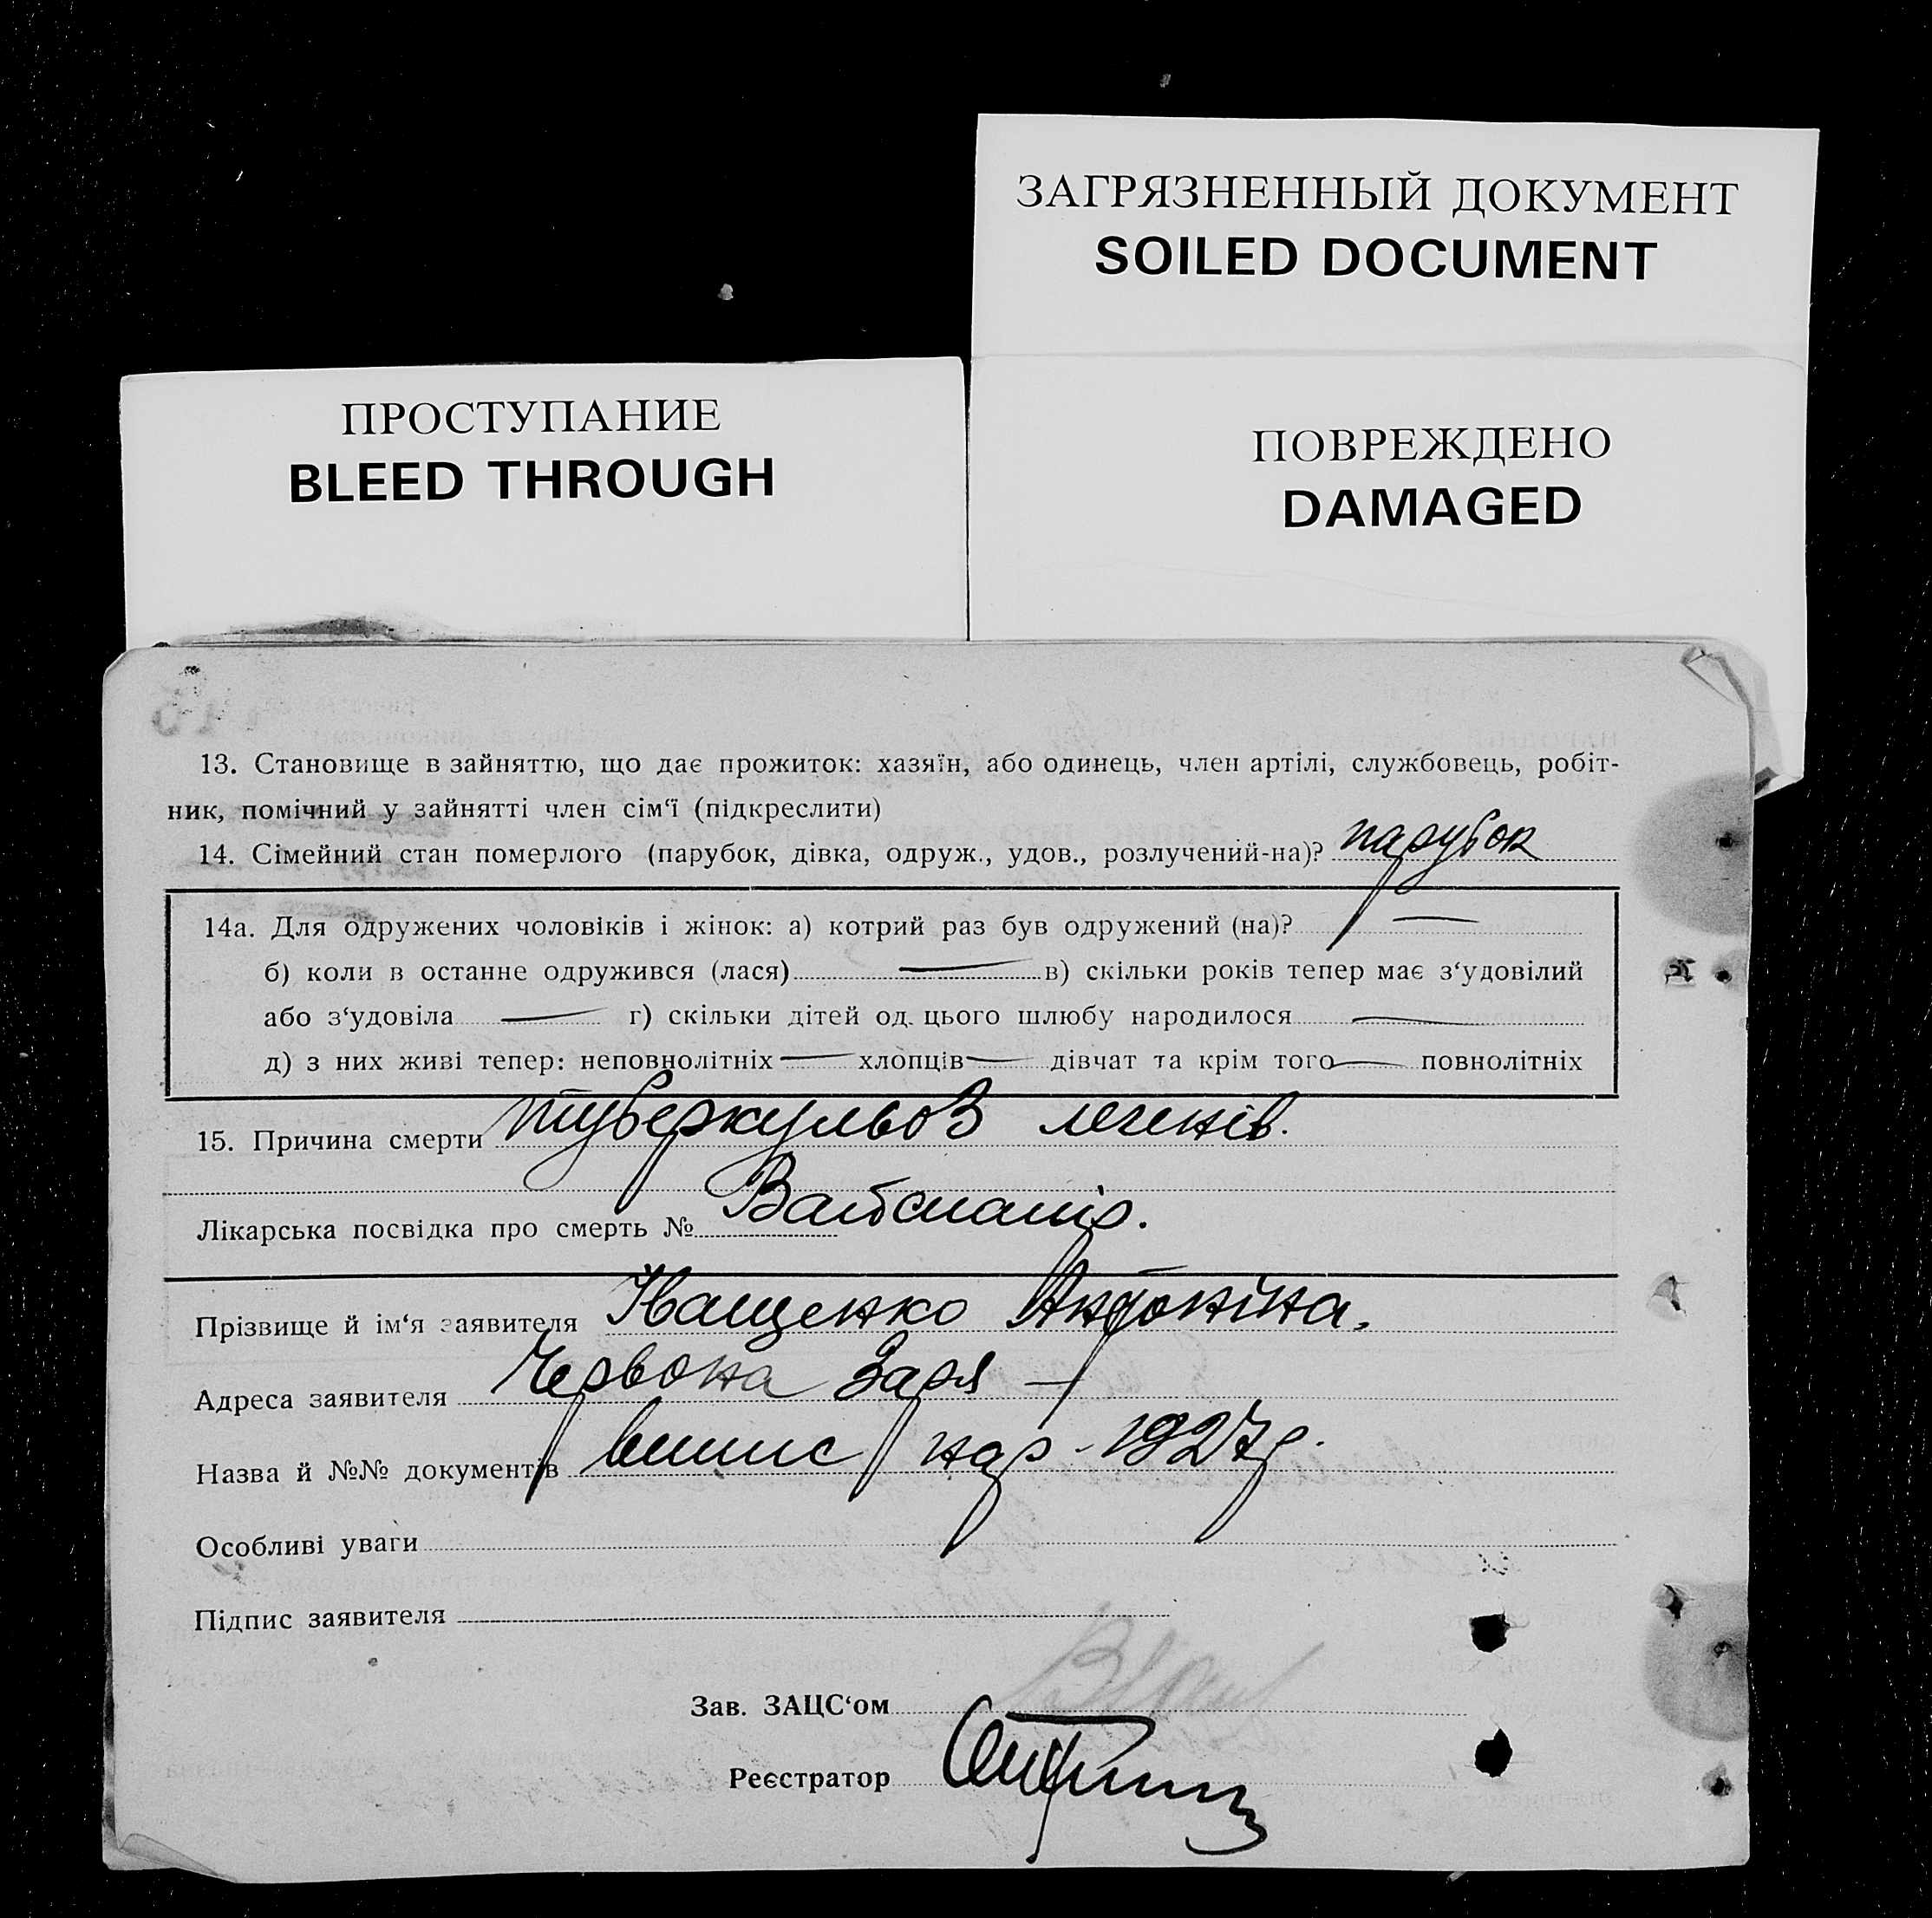 ЗАГРЯЗНЕННЫЙ ДОКУМЕНТ
SOILED DOCUMENT
ПРОСТУПАНИЕ
BLEED THROUGH
ПОВРЕЖДЕНО
DAMAGED
13. Становище в зайняттю, що дає прожиток: хазяїн, або одинець, член артілі, службовець, робіт-
ник, помічний у зайнятті член сім‘ї (підкреслити)
14. Сімейний стан померлого (парубок, дівка, одруж., удов., розлучений-на)? парубок
14а. Для одружених чоловіків і жінок: а) котрий раз був одружений (на)? —
б) коли в останне одружився (лася) — в) скільки років тепер має з‘удовілий
або з‘удовіла — г) скільки дітей од. цього шлюбу народилося —
д) з них живі тепер: неповнолітніх — хлопців — дівчат та крім того — повнолітніх
15. Причина смерти туберкульоз легенів.
Лікарська посвідка про смерть №
Прізвище й ім‘я заявителя Іващенко Антоніна.
Адреса заявителя Червона Заря —
Назва й №№ документів випис нар. 1927р.
Особливі уваги
Підпис заявителя
Зав. ЗАЦС‘ом
Реєстратор